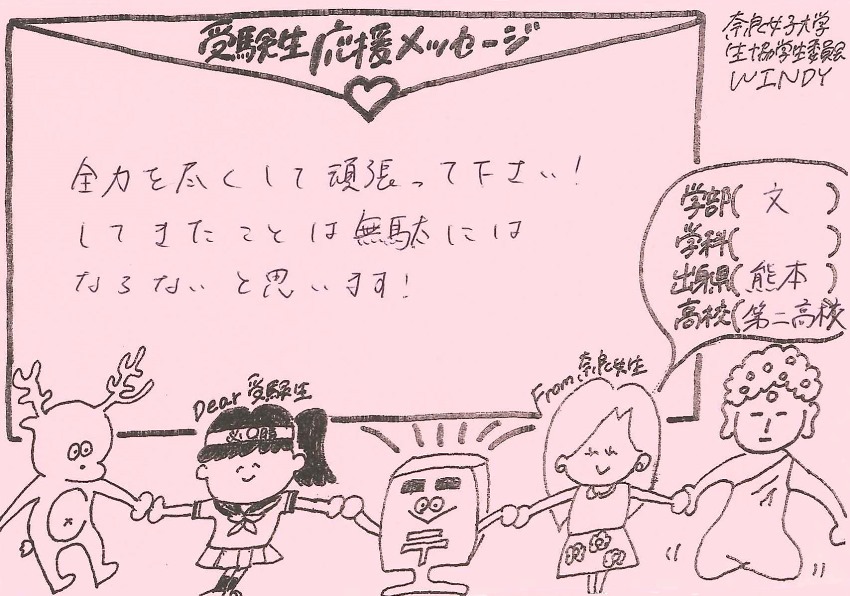 受験生応援メッセージ
奈良女子大学
生協学生委員会
WINDY
全力を尽くして頑張って下さい!
してきたことは無駄には
ならないと思います!
学部( 文 )
学科( )
出身県( 熊本 )
高校(第二高校
Dear 受験生
From 奈良女生
必〇勝
〒